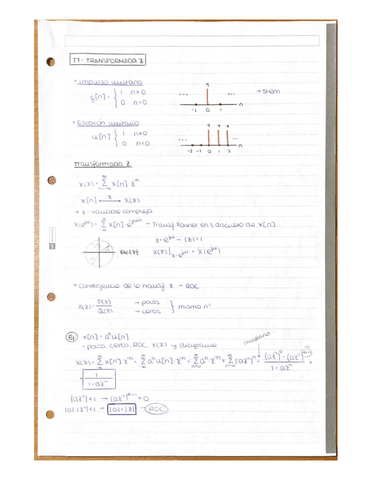 T7 - TRANSFORMADA Z
• Impulso unitario
δ[n] = { 1 n=0
0 n≠0
→ stem
-2 -1 0 1 n
• Escalón unitario
u[n] { 1 n≥0
0 n<0
-2 -1 0 1 2 n
Transformada Z
X(z) = Σ x[n] z⁻ⁿ
x[n] ⟷ X(z)
z - variable compleja
X(e^jω) = Σ x[n] e^-jωn - Transf Fourier en s. discreto de x[n]
z = e^jω → |z| = 1
X(z)|z=e^jω = X(e^jω)
• Convergencia de la transf z - ROC
X(z) = P(z)/Q(z) → polos
→ ceros } mismo nº
Ej x[n] = aⁿu[n]
- polos, ceros, ROC, X(z) y diagrama
X(z) = Σ x[n] z⁻ⁿ = Σ aⁿu[n] z⁻ⁿ = Σ aⁿ z⁻ⁿ = Σ (az⁻¹)ⁿ =
= 1/(1-az⁻¹)
|az⁻¹| < 1 →
|a| |z⁻¹| < 1 → |a| < |z| → ROC